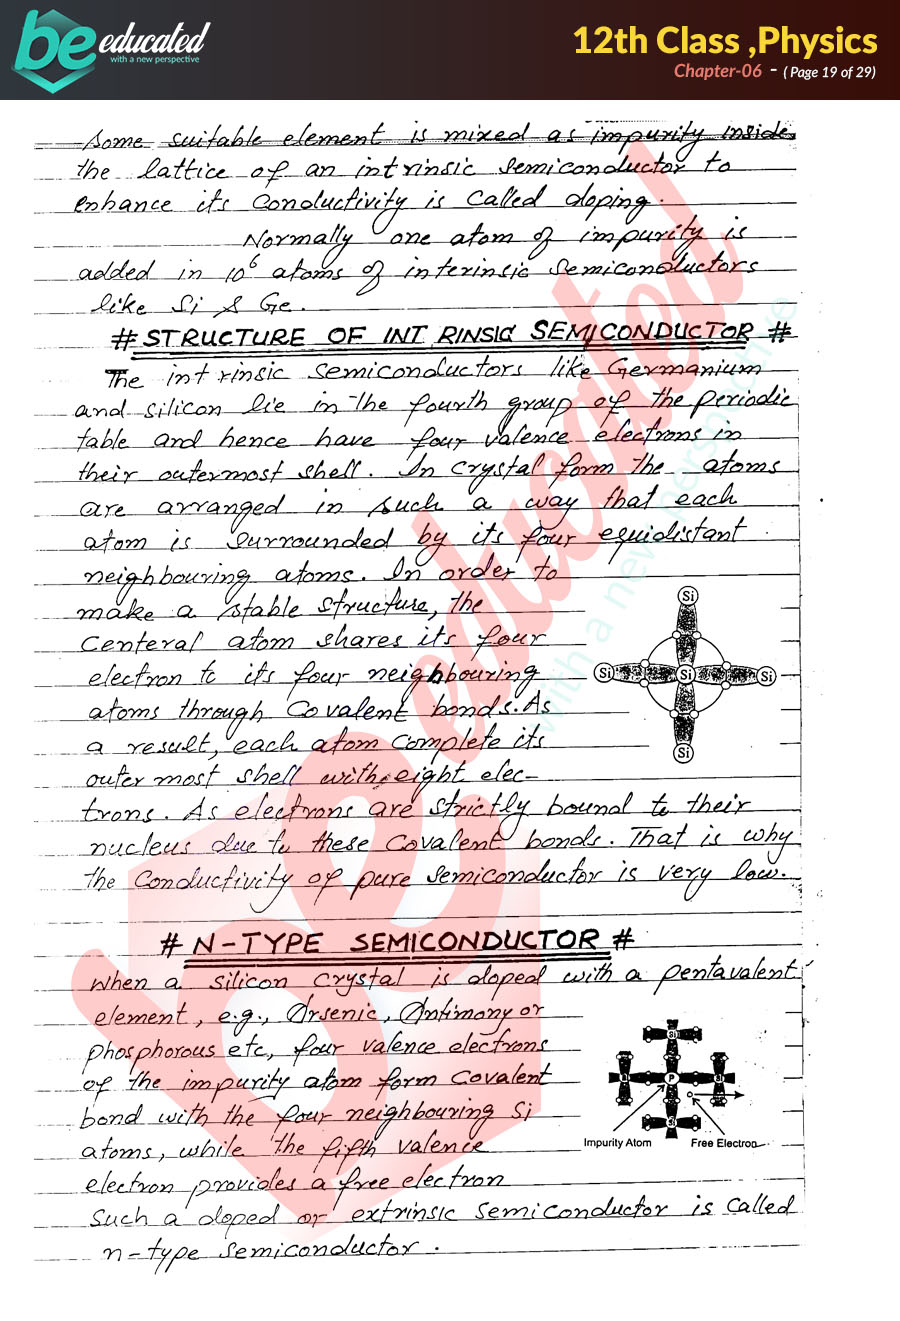 be educated
with a new perspective
12th Class ,Physics
Chapter-06 - ( Page 19 of 29)
Some suitable element is mixed as impurity inside
the lattice of an intrinsic semiconductor to
enhance its conductivity is called doping.
Normally one atom of impurity is
added in 10⁶ atoms of interinsic semiconductors
like Si & Ge.
# STRUCTURE OF INTRINSIC SEMICONDUCTOR #
The intrinsic semiconductors like Germanium
and silicon lie in the fourth group of the periodic
table and hence have four valence electrons in
their outermost shell. In crystal form the atoms
are arranged in such a way that each
atom is surrounded by its four equidistant
neighbouring atoms. In order to
make a stable structure, the
centeral atom shares its four
electron to its four neighbouring
atoms through covalent bonds. As
a result, each atom complete its
outer most shell with eight elec-
trons. As electrons are strictly bound to their
nucleus due to these covalent bonds. That is why
the conductivity of pure semiconductor is very low.
Si
Si Si Si
Si
# N-TYPE SEMICONDUCTOR #
When a silicon crystal is doped with a pentavalent
element, e.g., Arsenic, Antimony or
phosphorous etc, four valence electrons
of the impurity atom form covalent
bond with the four neighbouring Si
atoms, while the fifth valence
electron provides a free electron
Such a doped or extrinsic semiconductor is called
n-type semiconductor.
Si
Si P Si
Si
Impurity Atom Free Electron
be educated
with a new perspective